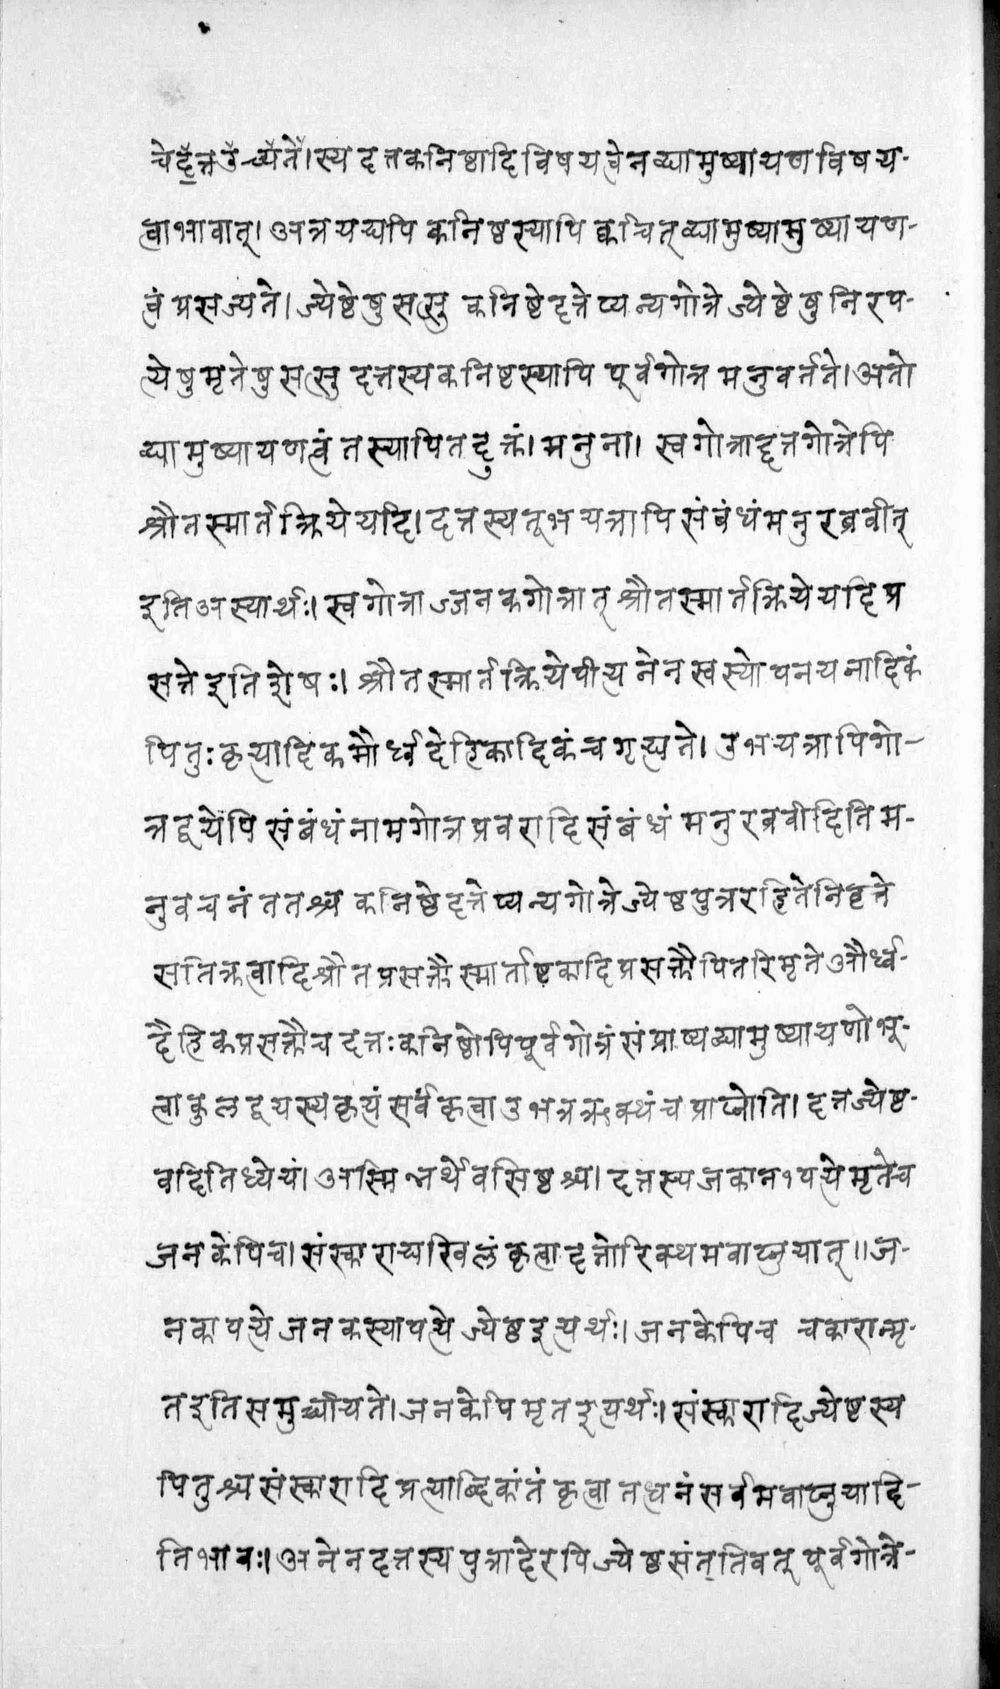 चेद्दन्न उच्यते। स्य दत्तकनिष्ठादिविषयत्वेनव्द्यामुष्यायणविषय-
त्वाभावात्। अत्र यद्यपि कनिष्ठस्यापि क्वचित् व्द्यामुष्यामुष्यायण-
त्वं प्रसज्यते। ज्येष्ठेषु सत्सु कनिष्टे दत्तेप्यन्यगोत्रे ज्येष्ठेषु निरप-
त्येषुमृतेषु सत्सु दत्तस्यकनिष्टस्यापि पूर्वगोत्र मनुवर्तते। अतो
व्द्यामुष्यायणत्वं तस्यापि तदुक्तं। मनुना। स्वगोत्राद्दत्तगोत्रेपि
श्रौतस्मार्तक्रिये यदि। दत्तस्यतूभयत्रापि संबंधं मनुरब्रवीत्
इति अस्यार्थः। स्वगोत्राज्जनकगोत्रात् श्रौतस्मार्तक्रिये यदि प्र
सक्ते इति शेषः। श्रौतस्मार्तक्रियेपीत्यनेन स्वस्योपनयनादिकं
पितुः कृत्यादिकमौर्ध्वदेहिकादिकं च गृह्यते। उभयत्रापि गो-
त्रद्वयेपि संबंधं नामगोत्रप्रवरादि संबंधं मनुरब्रवीदिति म-
नुवचनं ततश्च कनिष्ठे दत्तेप्यन्यगोत्रे ज्येष्ठपुत्ररहिते निवृत्ते
सति क्रत्वादिश्रौतप्रसक्तौ स्मार्ताष्टकादिप्रसक्तौ पितरि मृते और्ध्व-
दैहिकप्रसक्तौ च दत्तः कनिष्ठोपि पूर्वगोत्रं संप्राप्य व्द्यामुष्यायणो भू-
त्वा कुलद्वयस्य कृत्यं सर्वं कृत्वा उभत्र ऋक्थं च प्राप्नोति। दत्तज्येष्ठ-
वदिति ध्येयं। अस्मिन्नर्थे वसिष्ठश्च। दत्तस्य जकान१पत्ये मृते च
जनकेपि च। संस्काराद्यखिलं कृत्वा दत्तो रिक्थमवाप्नुयात्॥ ज-
नकापत्ये जनकस्यापत्ये ज्येष्ठ इत्यर्थः। जनकेपि च चकारान्मृ-
त इति समुच्चीयते। जनकेपि मृत इत्यर्थः। संस्कारादि ज्येष्टस्य
पितुश्च संस्कारादि प्रत्याब्दिकांतं कृत्वा तध्धनं सर्वमवाप्नुयादि-
ति भावः। अनेन दत्तस्य पुत्रादेरपि ज्येष्ठसंततिवत् पूर्वगोत्रे-